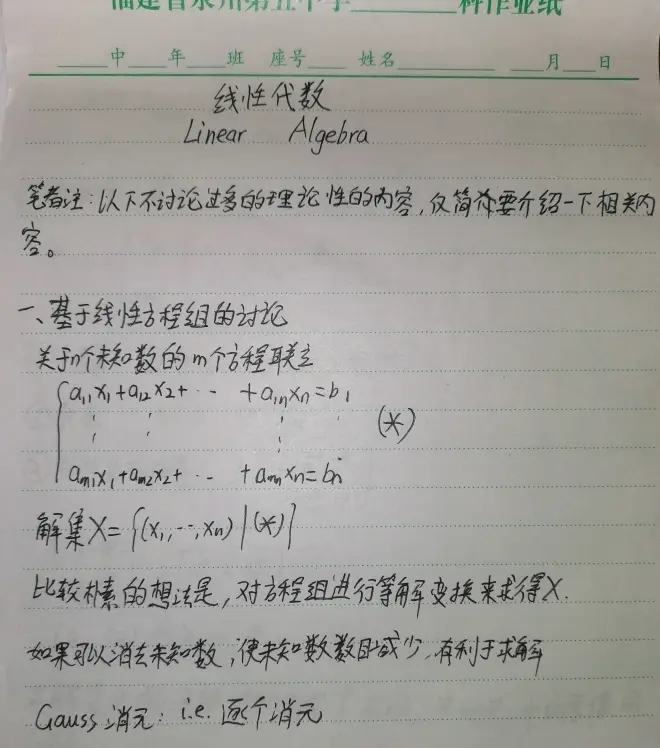 福建省泉州第五中学____科作业纸
____中____年____班 座号____ 姓名____ ____月____日
线性代数
Linear Algebra
笔者注：以下不讨论过多的理论性的内容，仅简要介绍一下相关内
容。
一、基于线性方程组的讨论
关于n个未知数的m个方程联立
a₁₁x₁+a₁₂x₂+ ‥ +a₁ₙxₙ=b₁
⋮ ⋮ ⋮ ⋮ (*)
aₘ₁x₁+aₘ₂x₂+ ‥ +aₘₙxₙ=bₙ
解集X={(x₁,‥,xₙ)|(*)}
比较朴素的想法是，对方程组进行等解变换来求得X.
如果可以消去未知数，使未知数数目减少，有利于求解
Gauss消元：i.e. 逐个消元